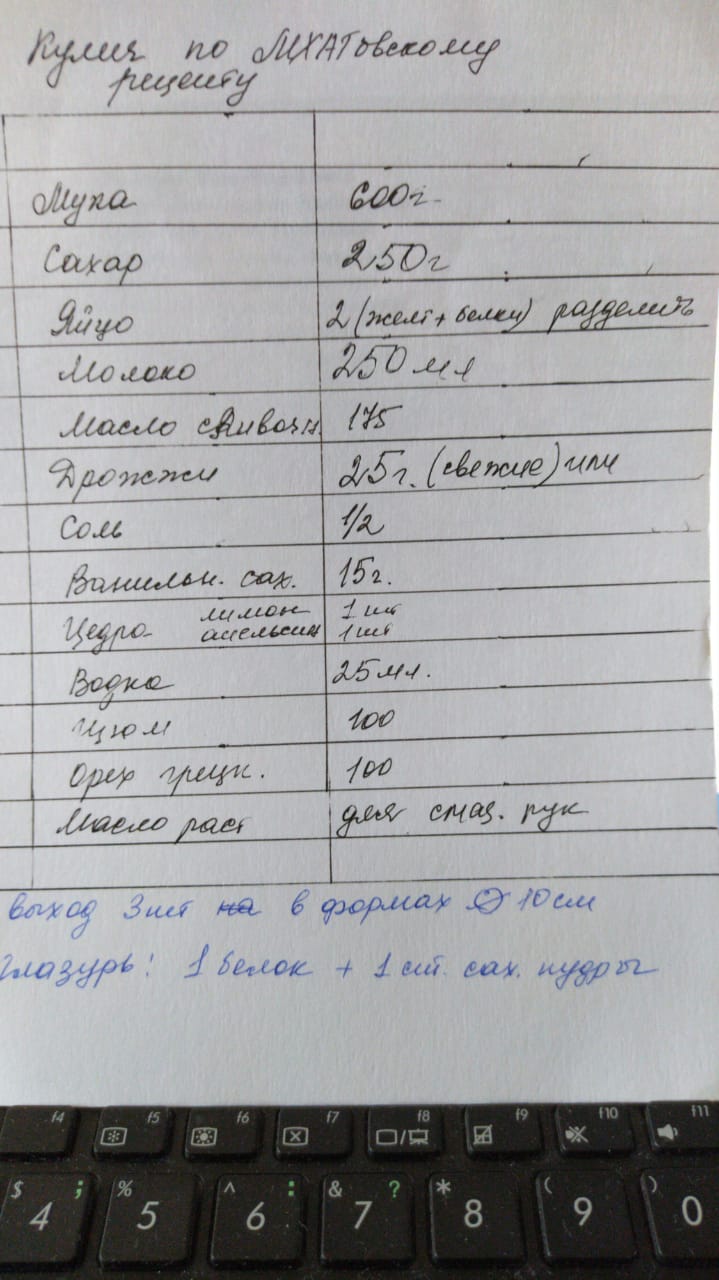 Кулич по МХАТовскому
рецепту
Мука 600г
Сахар 250г
Яйцо 2 (желт + белки) разделить
Молоко 250 мл
Масло сливочн. 175
Дрожжи 25г. (свежие) или
Соль 1/2
Ванильн. сах. 15г.
Цедра лимон 1 шт
апельсин 1 шт
Водка 25 мл.
Изюм 100
Орех грецк. 100
Масло раст для смаз. рук
выход 3 шт на в формах ∅ 10 см
глазурь: 1 белок + 1 ст. сах. пудры
f4 f5 f6 f7 f8 f9 f10 f11
$ ; % ^ : & ? * ( )
4 5 6 7 8 9 0